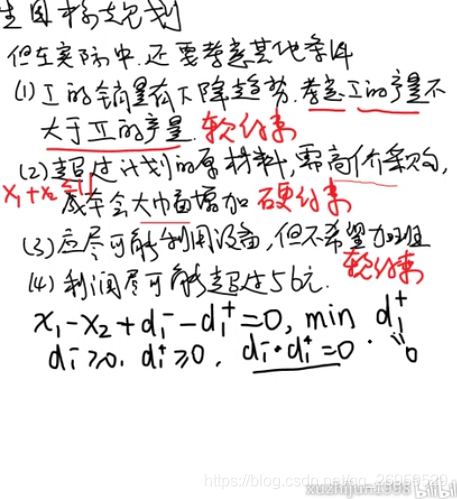 目标规划
但在实际中.还要考虑其他条件
(1) I的销量有下降趋势.考虑I的产量不
大于II的产量.软约束
(2)超过计划的原材料,需高价采购,
x₁+x₂
成本会大幅面增加 硬约束
(3)应尽可能利用设备,但不希望加班
软约束
(4)利润尽可能超过56元.
x₁-x₂+d₁⁻-d₁⁺=0, min d₁⁺
d₁⁻≥0. d₁⁺≥0. d₁⁻·d₁⁺=0. 0
https://blog.csdn.net/qq_26969529
xuzhijun-1998 bilibili